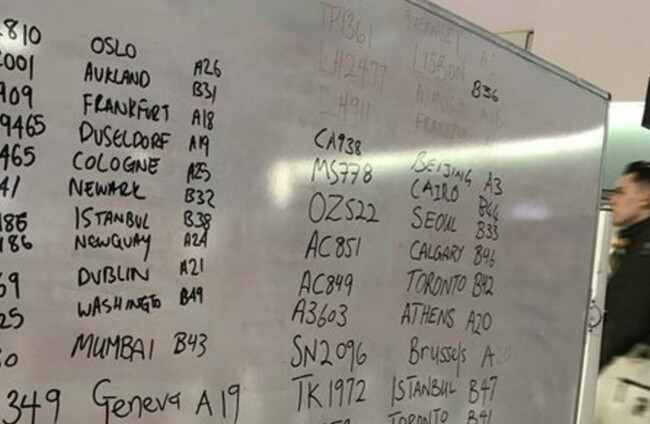 810 OSLO A26
001 AUKLAND B31
909 FRANKFURT A18
9465 DUSELDORF A19
465 COLOGNE A25
41 NEWARK B32
186 ISTANBUL B38
186 NEWQUAY A24
69 DUBLIN A21
25 WASHINGTO B49
MUMBAI B43
349 Geneva A19
TP1361 GUERNSEY
LH2477 LISBON B36
LH911
CA938 BEIJING A3
MS778 CAIRO B44
OZ522 SEOUL B33
AC851 CALGARY B46
AC849 TORONTO B42
A3603 ATHENS A20
SN2096 Brussels A20
TK1972 ISTANBUL B47
TORONTO B41